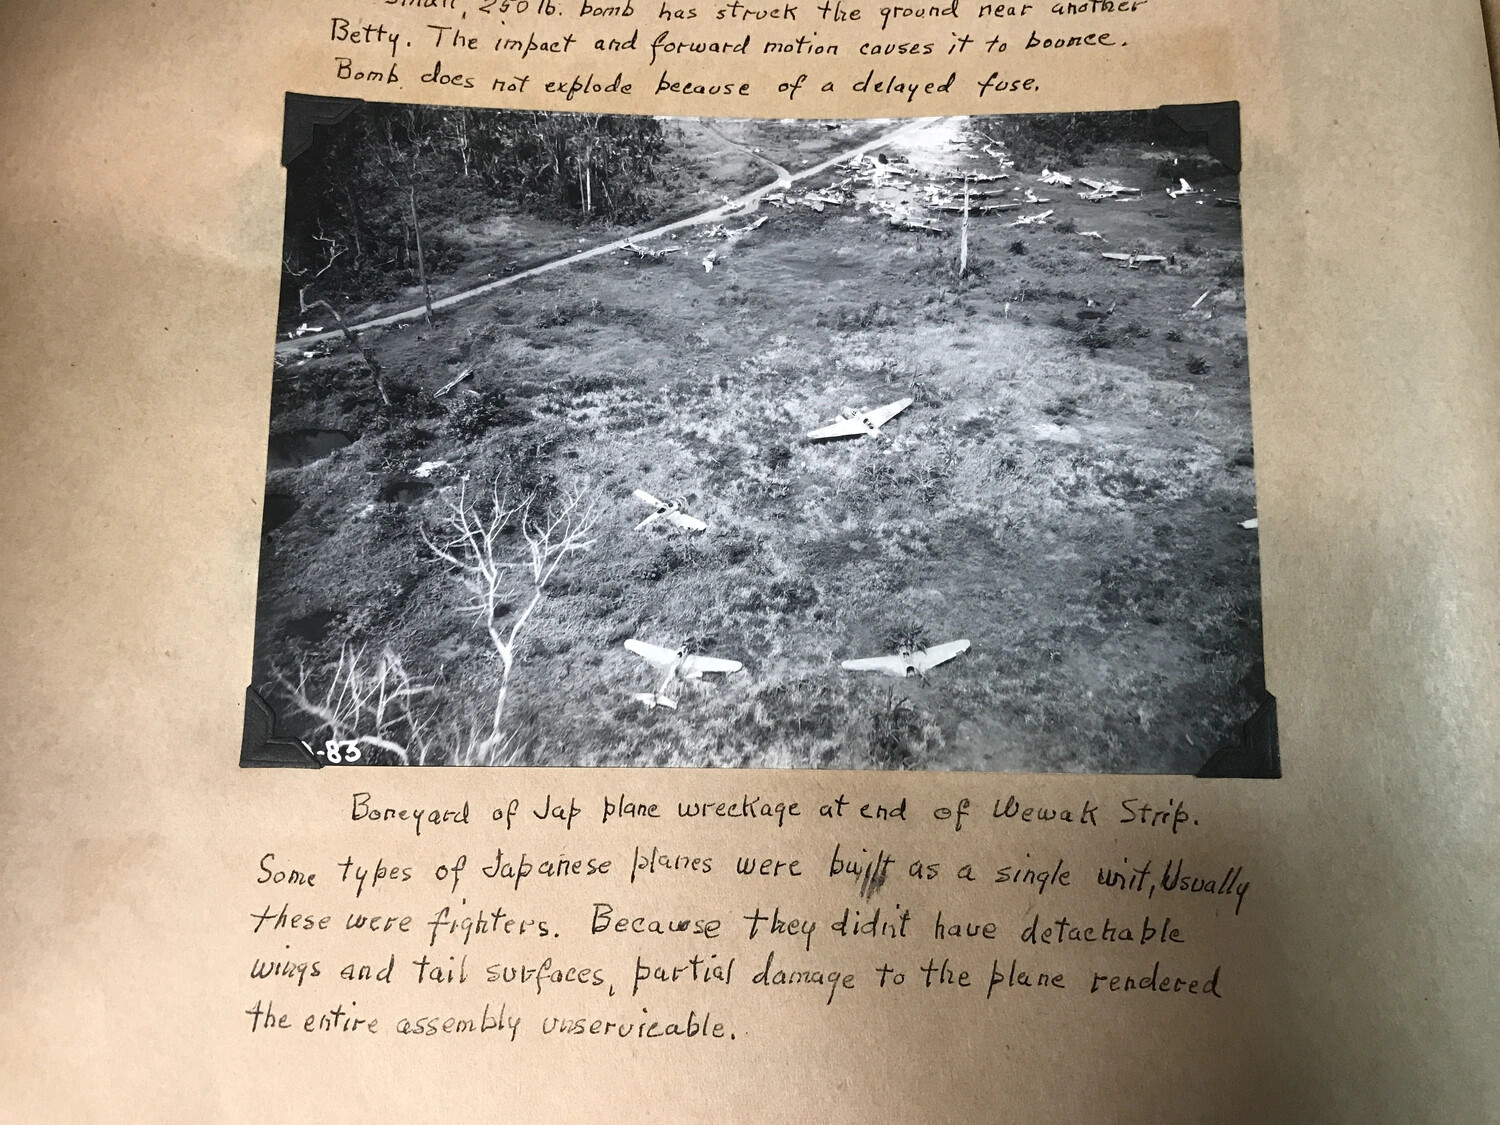 small, 250 lb. bomb has struck the ground near another
Betty. The impact and forward motion causes it to bounce.
Bomb does not explode because of a delayed fuse.
-83
Boneyard of Jap plane wreckage at end of Wewak Strip.
Some types of Japanese planes were built as a single unit, Usually
these were fighters. Because they didn't have detachable
wings and tail surfaces, partial damage to the plane rendered
the entire assembly unservicable.